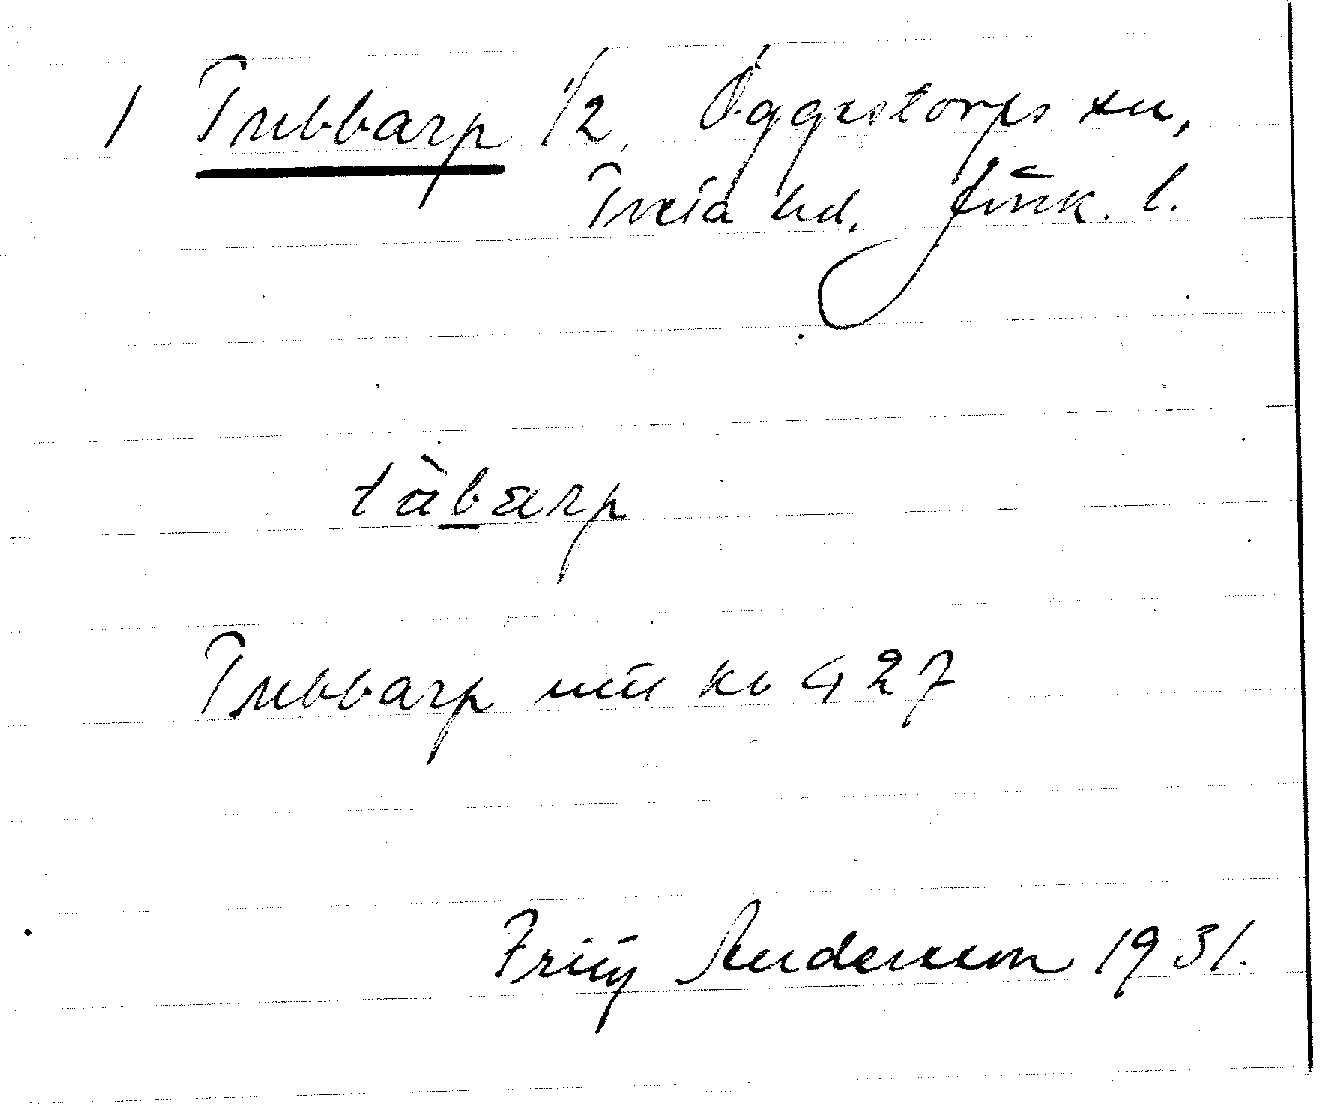 1 Trubbarp 1/2, Öggestorps sn,
Tveta hd, Jönk. l.
tàbarp
Trubbarp
427
Andersson 1931.